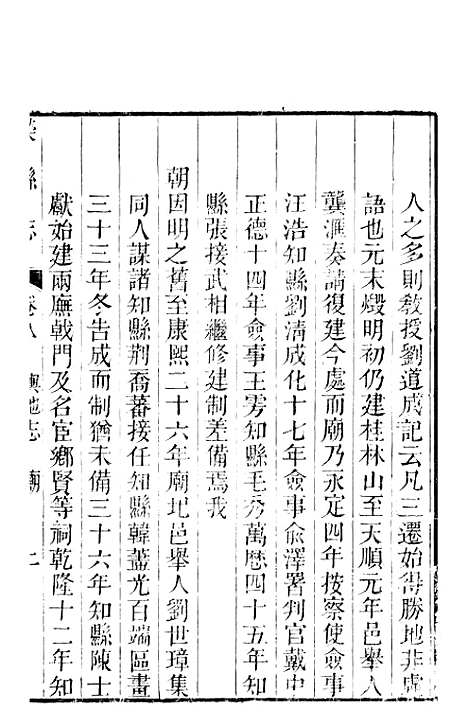 人之多則教授劉道成記云凡三遷始得勝地非虛
語也元末燬明初仍建桂林山至天順元年邑舉人
龔滙奏請復建今處而廟乃永定四年按察使僉事
汪浩知縣劉清成化十七年僉事俞澤署判官戴中
正德十四年僉事王雱知縣毛秀萬曆四十五年知
縣張接武相繼修建制差備焉我
朝因明之舊至康熙二十六年廟圮邑舉人劉世璋集
同人謀諸知縣荆喬蕃接任知縣韓藎光百端區畫
三十三年冬告成而制猶未備三十六年知縣陳士
獻始建兩廡戟門及名宦鄉賢等祠乾隆十二年知
縣志 卷八 輿地志 廟 二